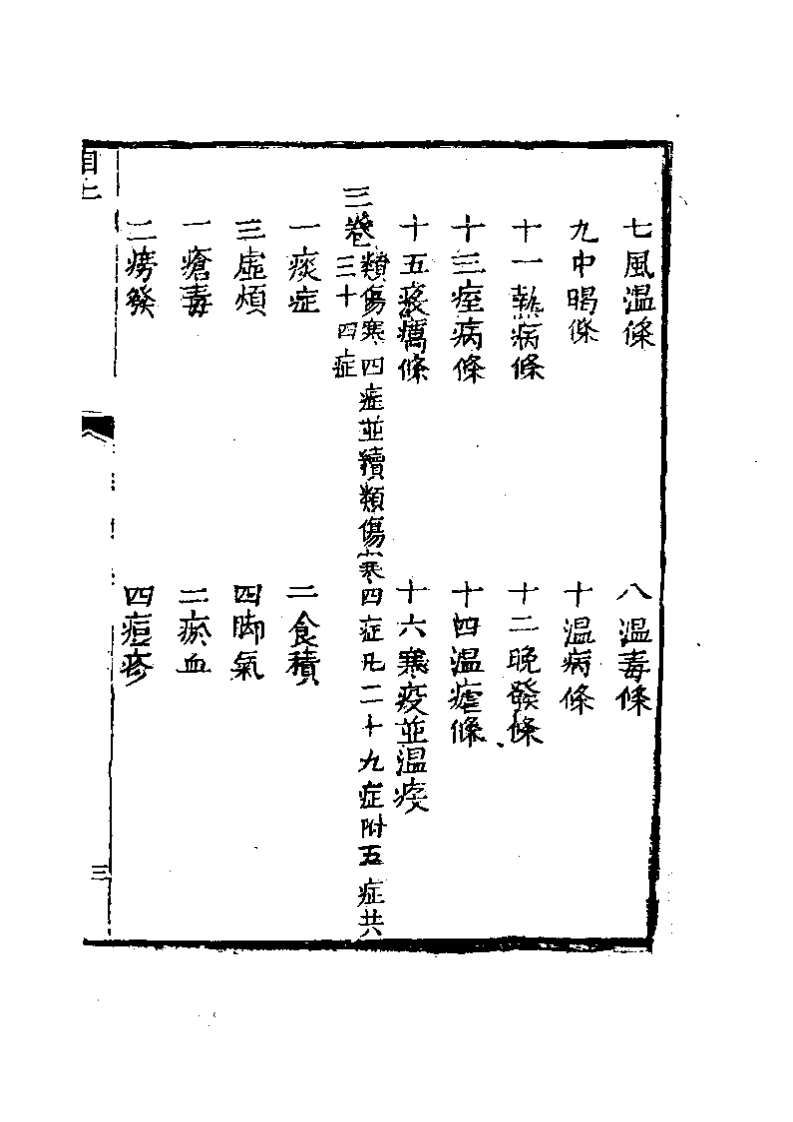 七風温條　八温毒條
九中暍條　十温病條
十一熱病條　十二晚發條
十三痓病條　十四温瘧條
十五疫癘條　十六寒疫並温疫
三卷　類傷寒四症並續類傷寒四症凡二十九症附五症共
三十四症
一痰症　二食積
三虛煩　四脚氣
一瘡毒　二瘀血
三癆發　四痘疹
目上
三